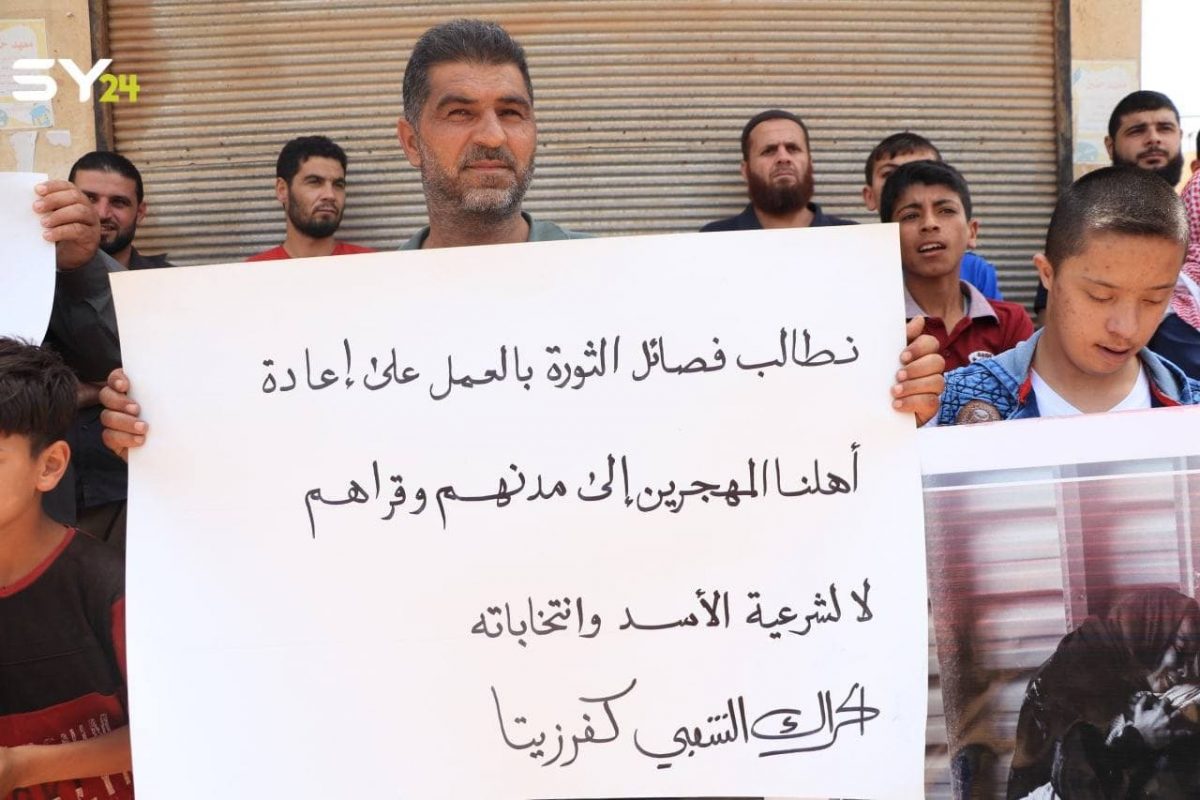 SY24
نطالب فصائل الثورة بالعمل على إعادة
أهلنا المهجرين إلى مدنهم وقراهم
لا لشرعية الأسد وانتخاباته
حراك الشعبي كفرزيتا